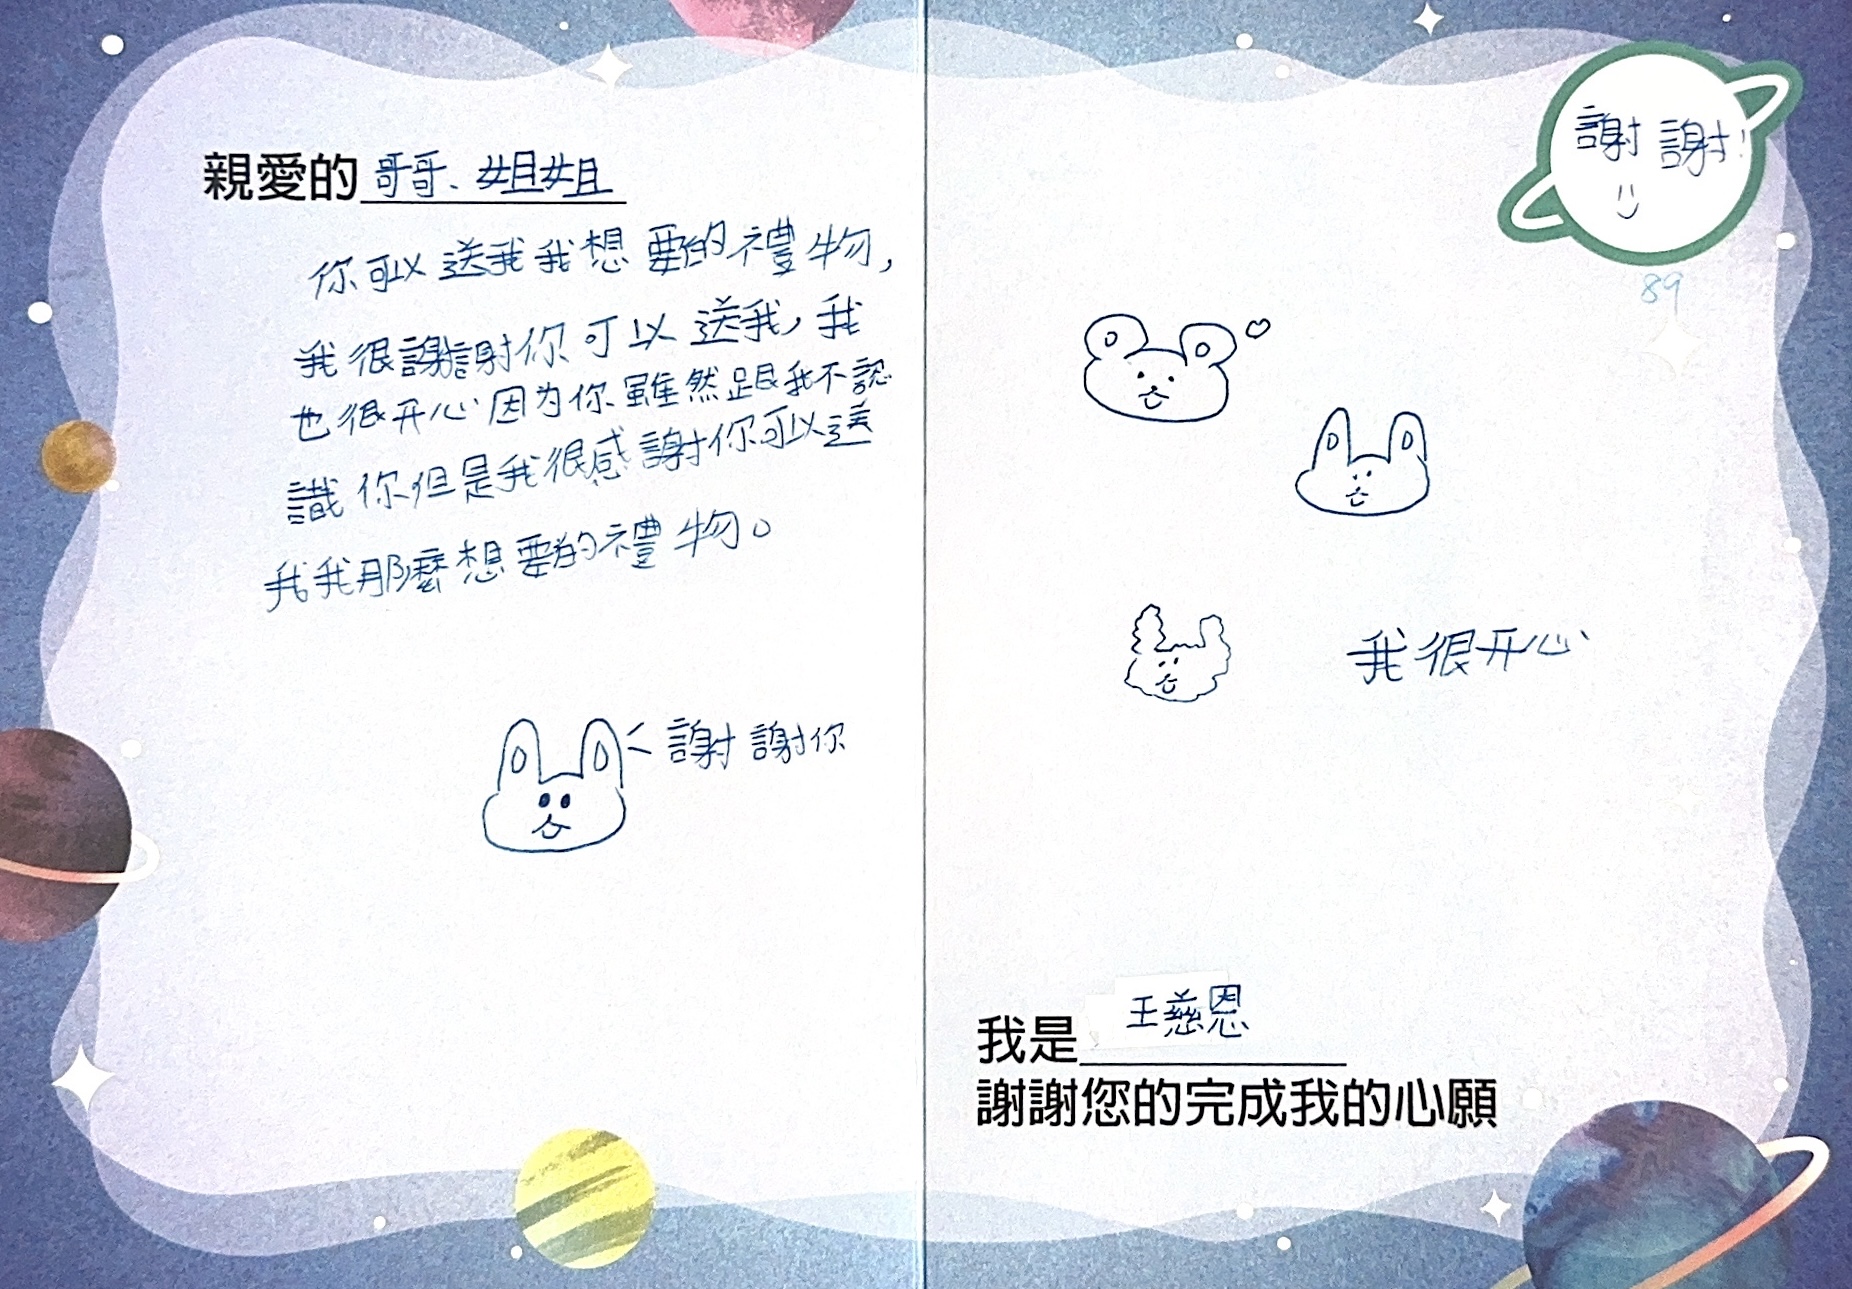 親愛的 哥哥、姐姐
你可以送我我想要的禮物,
我很謝謝你可以送我,我
也很开心因为你雖然跟我不認
識你但是我很感謝你可以送
我我那麼想要的禮物。
謝謝你
謝謝!
89
我很开心
我是王慈恩
謝謝您的完成我的心願